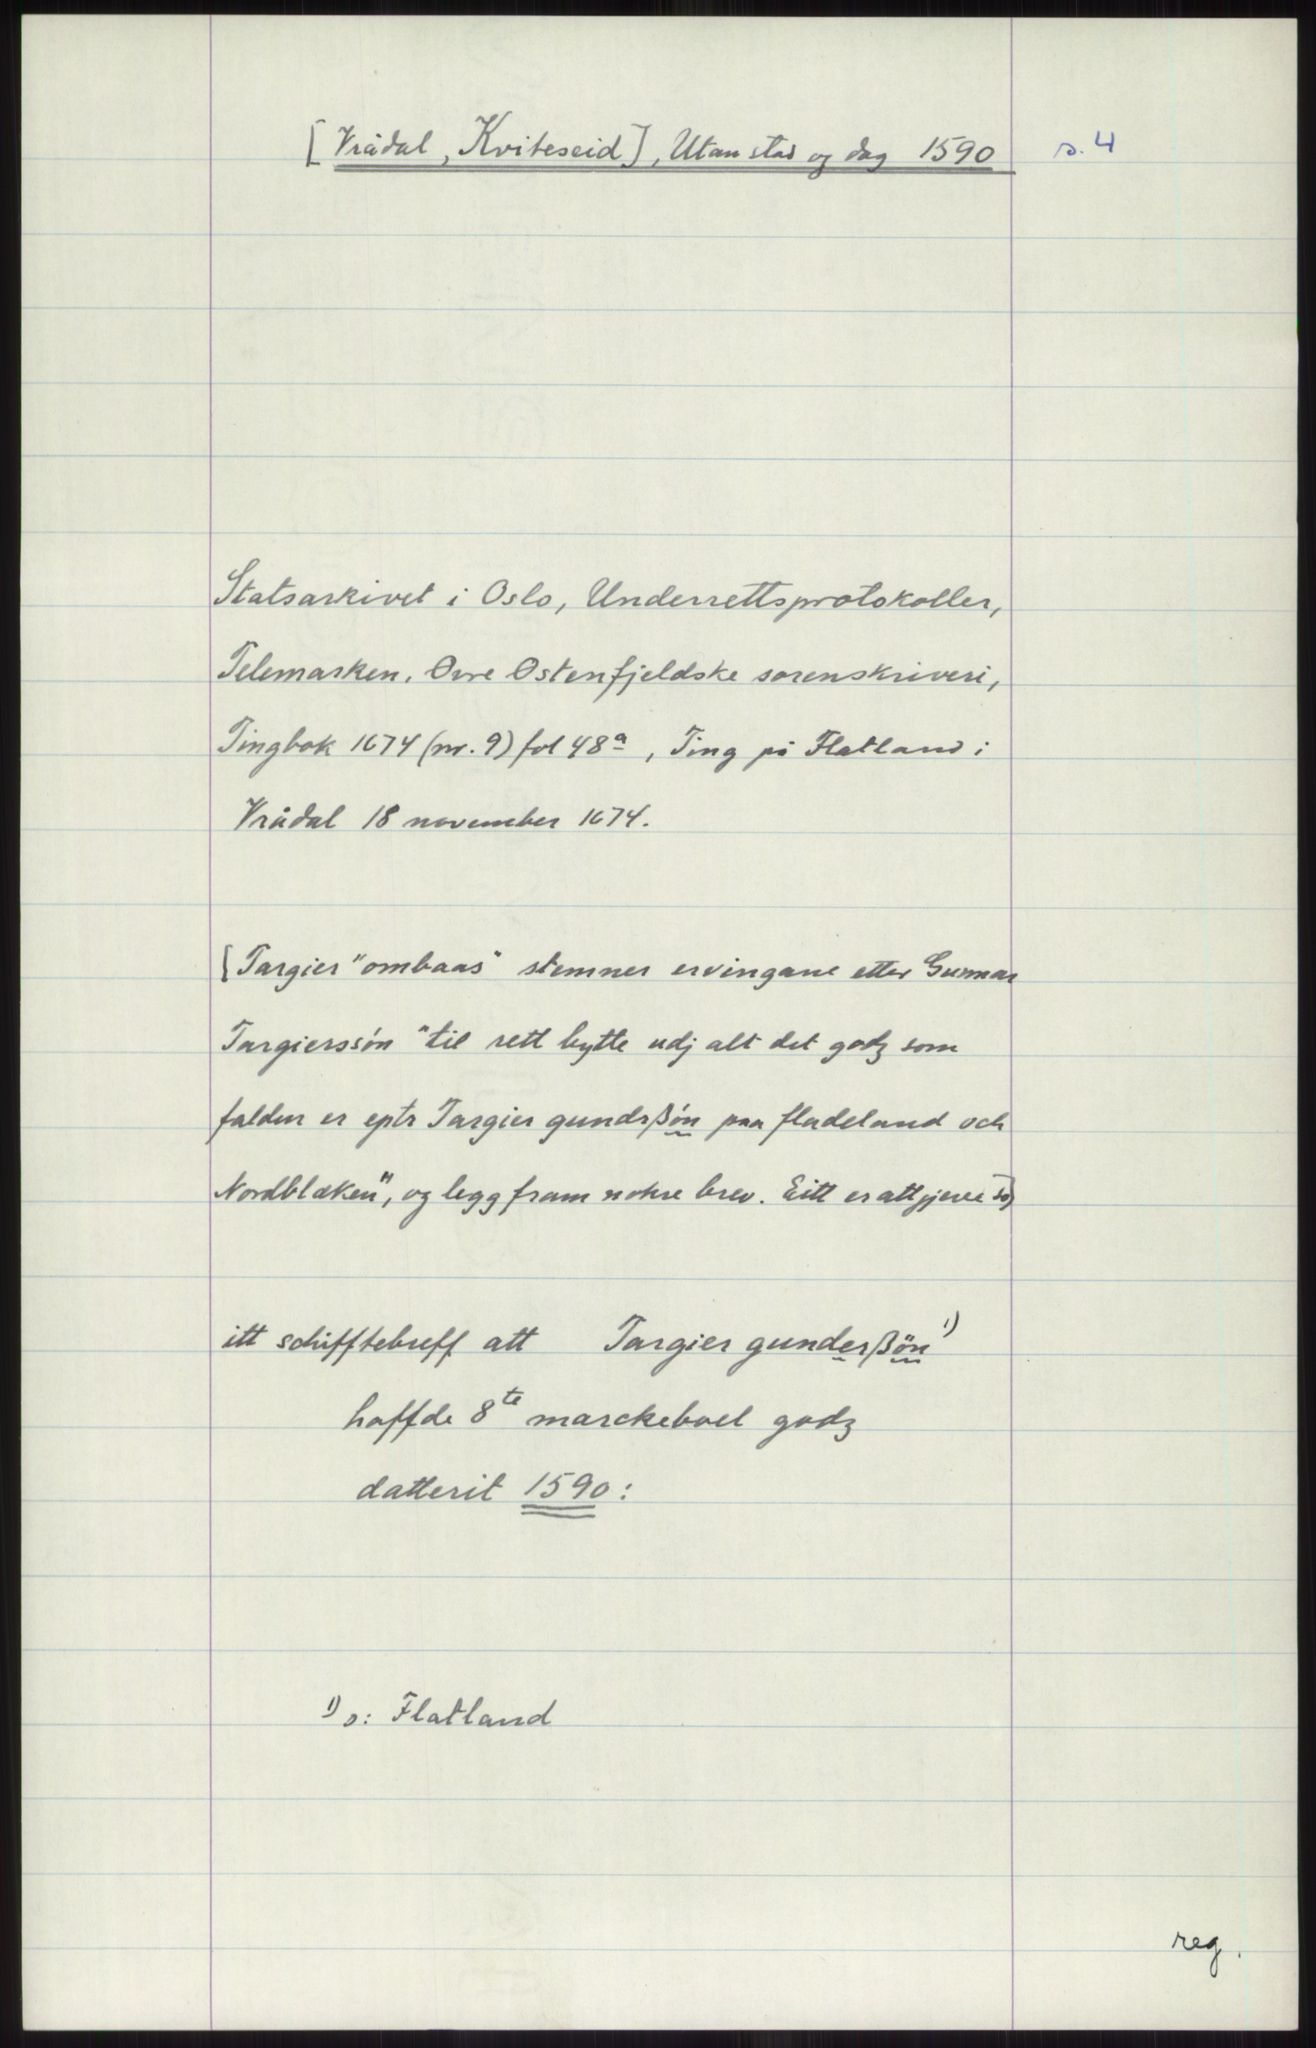 [Vrådal, Kviteseid], Utan stad og dag 1590 s. 4
Statsarkivet i Oslo, Underrettsprotokoller,
Telemarken, Øvre Østenfjeldske sorenskriveri,
Tingbok 1674 (nr. 9) fol 48ª, Ting på Flatland i
Vrådal 18 november 1674.
[Targier "ombaas" stemner ervingane etter Gunnar
Targierssøn "til rett bytte udj alt det godz som
falden er eptr Targier gundrßön paa fladeland och
Nordblæken", og legg fram nokre brev. Eitt er attgjeve so]
itt schifftebreff att Targier gunderßön ¹⁾
haffde 8te marckeboel godz
datterit 1590:
¹⁾ ɔ: Flatland
reg.